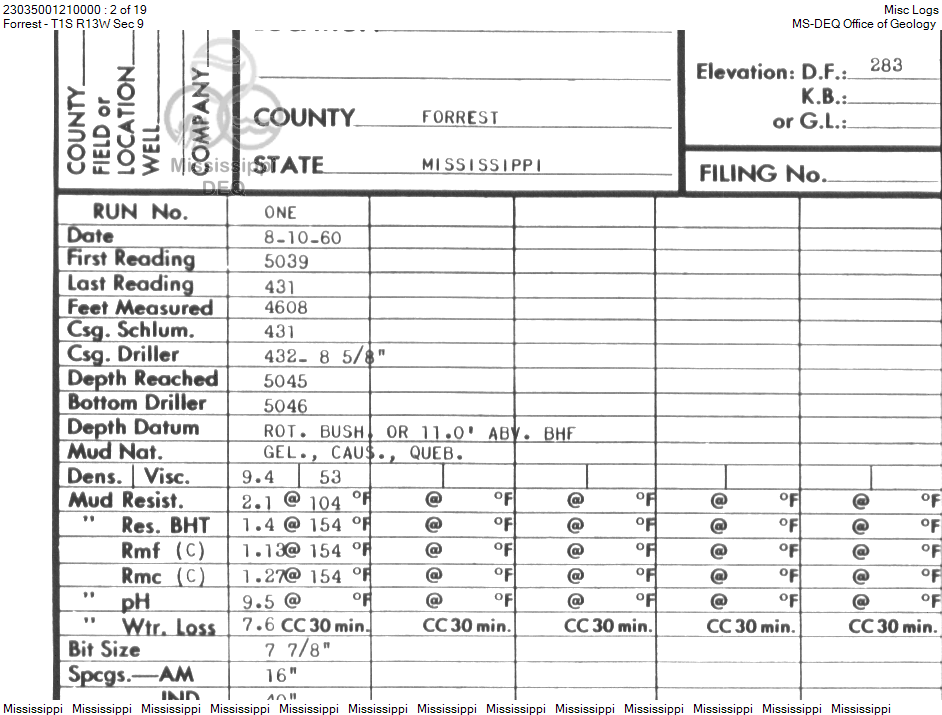 23035001210000 : 2 of 19 Misc Logs
Forrest - T1S R13W Sec 9 MS-DEQ Office of Geology
COUNTY
FIELD or
LOCATION
WELL
COMPANY
Elevation: D.F.: 283
K.B.:
COUNTY FORREST
or G.L.:
Mississippi
STATE MISSISSIPPI
FILING No.
DEQ
RUN No. ONE
Date 8-10-60
First Reading 5039
Last Reading 431
Feet Measured 4608
Csg. Schlum. 431
Csg. Driller 432- 8 5/8"
Depth Reached 5045
Bottom Driller 5046
Depth Datum ROT. BUSH. OR 11.0' ABV. BHF
Mud Nat. GEL., CAUS., QUEB.
Dens. | Visc. 9.4 | 53
Mud Resist. 2.1 @ 104 °F @ °F @ °F @ °F @ °F
" Res. BHT 1.4 @ 154 °F @ °F @ °F @ °F @ °F
Rmf (C) 1.13@ 154 °F @ °F @ °F @ °F @ °F
Rmc (C) 1.27@ 154 °F @ °F @ °F @ °F @ °F
" pH 9.5 @ °F @ °F @ °F @ °F @ °F
" Wtr. Loss 7.6 CC 30 min. CC 30 min. CC 30 min. CC 30 min. CC 30 min.
Bit Size 7 7/8"
Spcgs.—AM 16"
Mississippi Mississippi Mississippi Mississippi Mississippi Mississippi Mississippi Mississippi Mississippi Mississippi Mississippi Mississippi Mississippi